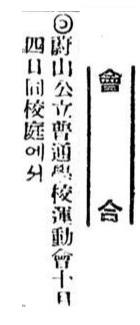 會合
◎蔚山公立普通學校運動會十日
四日同校庭에셔